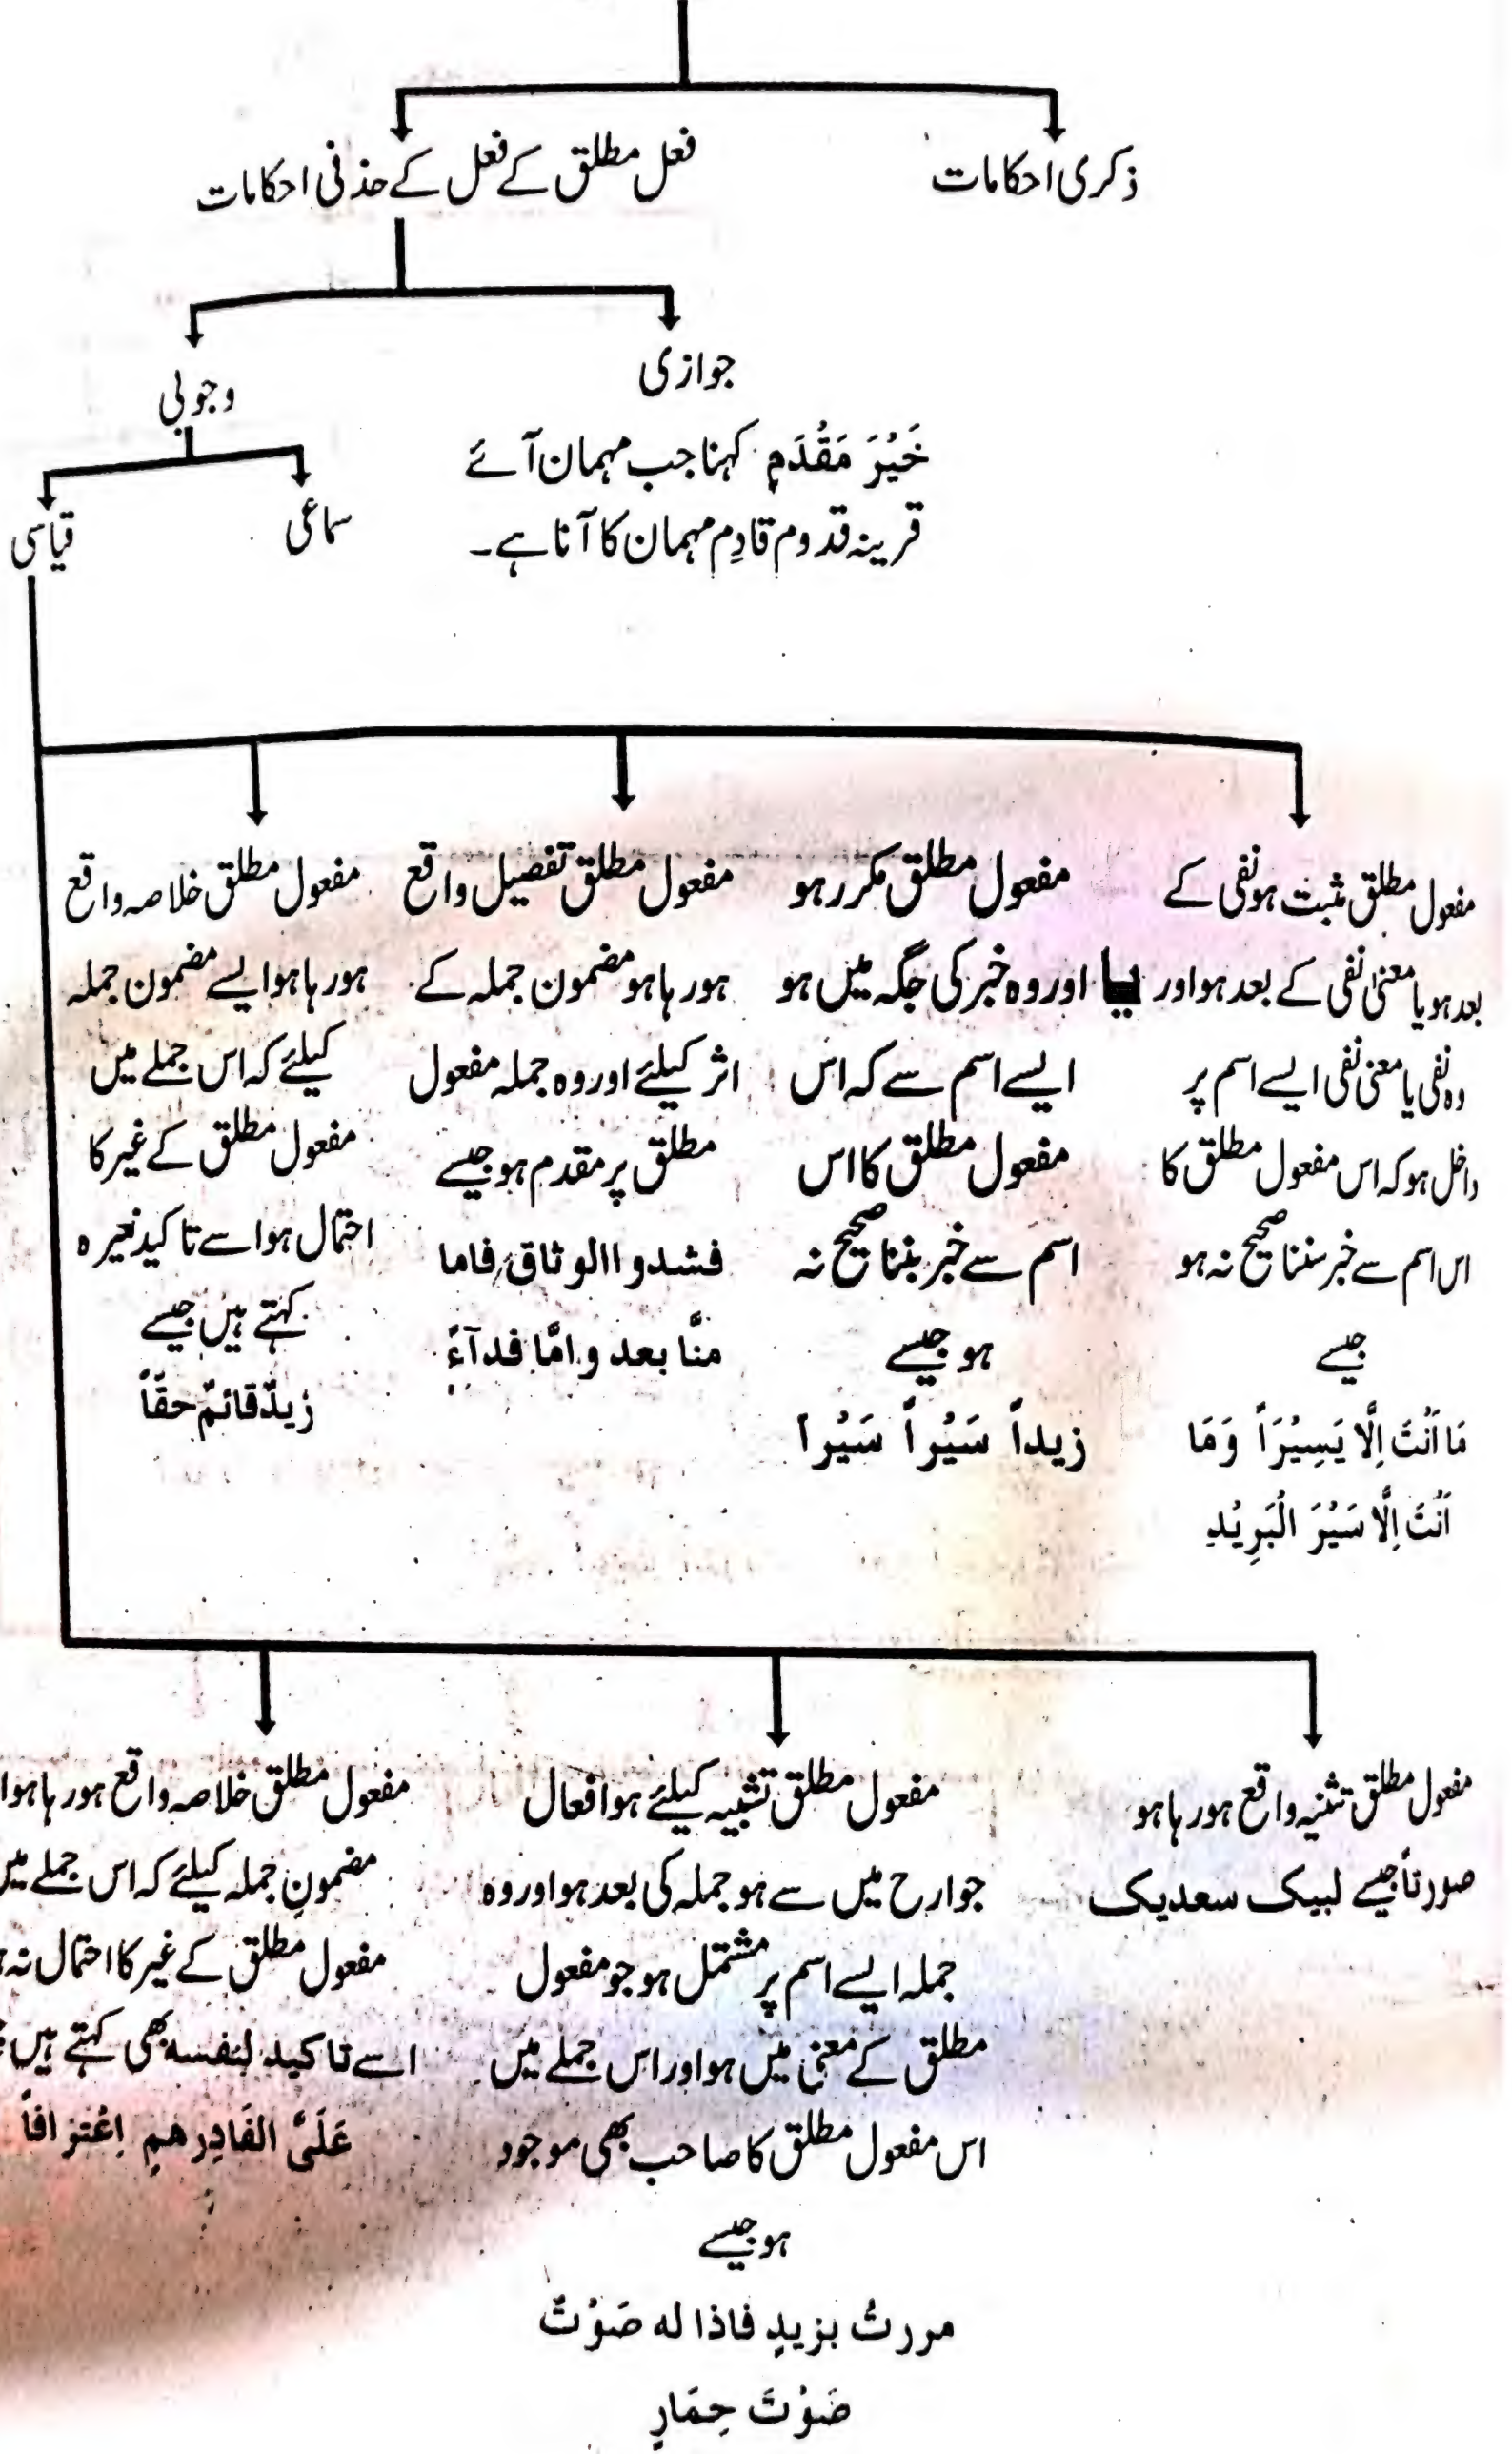 ذکری احکامات
فعل مطلق کے فعل کے حذفی احکامات
جوازی
خَیْرَ مَقْدَمٍ کہنا جب مہمان آئے
قرینہ قدوم قادِم مہمان کا آنا ہے۔
وجوبی
سماعی
قیاسی
مفعول مطلق مثبت ہو نفی کے
بعد ہو یا معنیٰ نفی کے بعد ہو اور
وہ نفی یا معنیٰ نفی ایسے اسم پر
داخل ہو کہ اس مفعول مطلق کا
اس اسم سے خبر بننا صحیح نہ ہو
جیسے
مَا اَنْتَ اِلَّا یَسِیْرَاً وَمَا
اَنْتَ اِلَّا سَیْرَ الْبَرِیْدِ
مفعول مطلق مکرر ہو
یا اور وہ خبر کی جگہ میں ہو
ایسے اسم سے کہ اس
مفعول مطلق کا اس
اسم سے خبر بننا صحیح نہ
ہو جیسے
زیداً سَیْراً سَیْراً
مفعول مطلق تفصیل واقع
ہو رہا ہو مضمون جملہ کے
اثر کیلئے اور وہ جملہ مفعول
مطلق پر مقدم ہو جیسے
فشدوا الوثاق فاما
منًّا بعد و امّا فدآءً
مفعول مطلق خلاصہ واقع
ہو رہا ہو ایسے مضمون جملہ
کیلئے کہ اس جملے میں
مفعول مطلق کے غیر کا
احتمال ہو اسے تاکید لغیرہ
کہتے ہیں جیسے
زیدٌ قائمٌ حقّاً
مفعول مطلق تثنیہ واقع ہو رہا ہو
صورتاً جیسے لبیک سعدیک
مفعول مطلق تشبیہ کیلئے ہو افعال
جوارح میں سے ہو جملہ کی بعد ہو اور وہ
جملہ ایسے اسم پر مشتمل ہو جو مفعول
مطلق کے معنیٰ میں ہو اور اس جملے میں
اس مفعول مطلق کا صاحب بھی موجود
ہو جیسے
مررتُ بزیدٍ فاذا له صَوْتٌ
صَوْتَ حِمَارٍ
مفعول مطلق خلاصہ واقع ہو رہا ہو ا
مضمونِ جملہ کیلئے کہ اس جملے میں
مفعول مطلق کے غیر کا احتمال نہ
اسے تاکید لنفسہ بھی کہتے ہیں
عَلَیَّ الفَادِرهمِ اِعْتِرَافاً